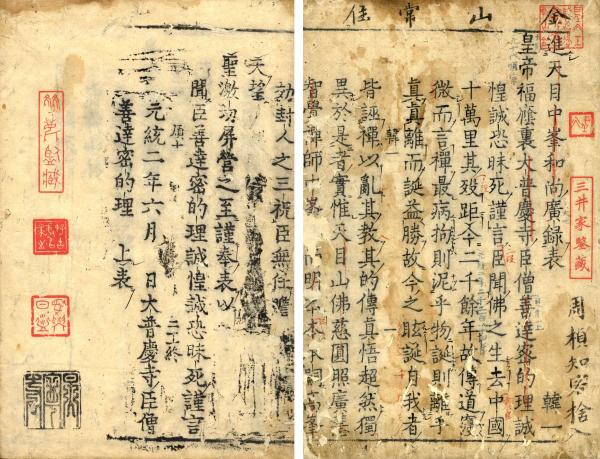 金山常住
三井家鑒藏
知客捨入
韓一
進天目中峯和尚廣錄表
皇帝福蔭裏大普慶寺臣僧善達密的理誠
惶誠恐昧死謹言臣聞佛之生去中國
十萬里其歿距今二千餘年故傳道寖
微而言禪最病拘則泥乎物誕則離乎
眞眞離而誕益勝故今之眩誕自我者
皆誣禪以亂其教其的傳真悟超然獨
異於是者實惟天目山佛慈圓照廣慧
智覺禪師
効封人之三祝臣無任瞻
天望
聖激切屏營之至謹奉表以
聞臣善達密的理誠惶誠恐昧死謹言
元統二年六月 日大普慶寺臣僧
善達密的理 上表